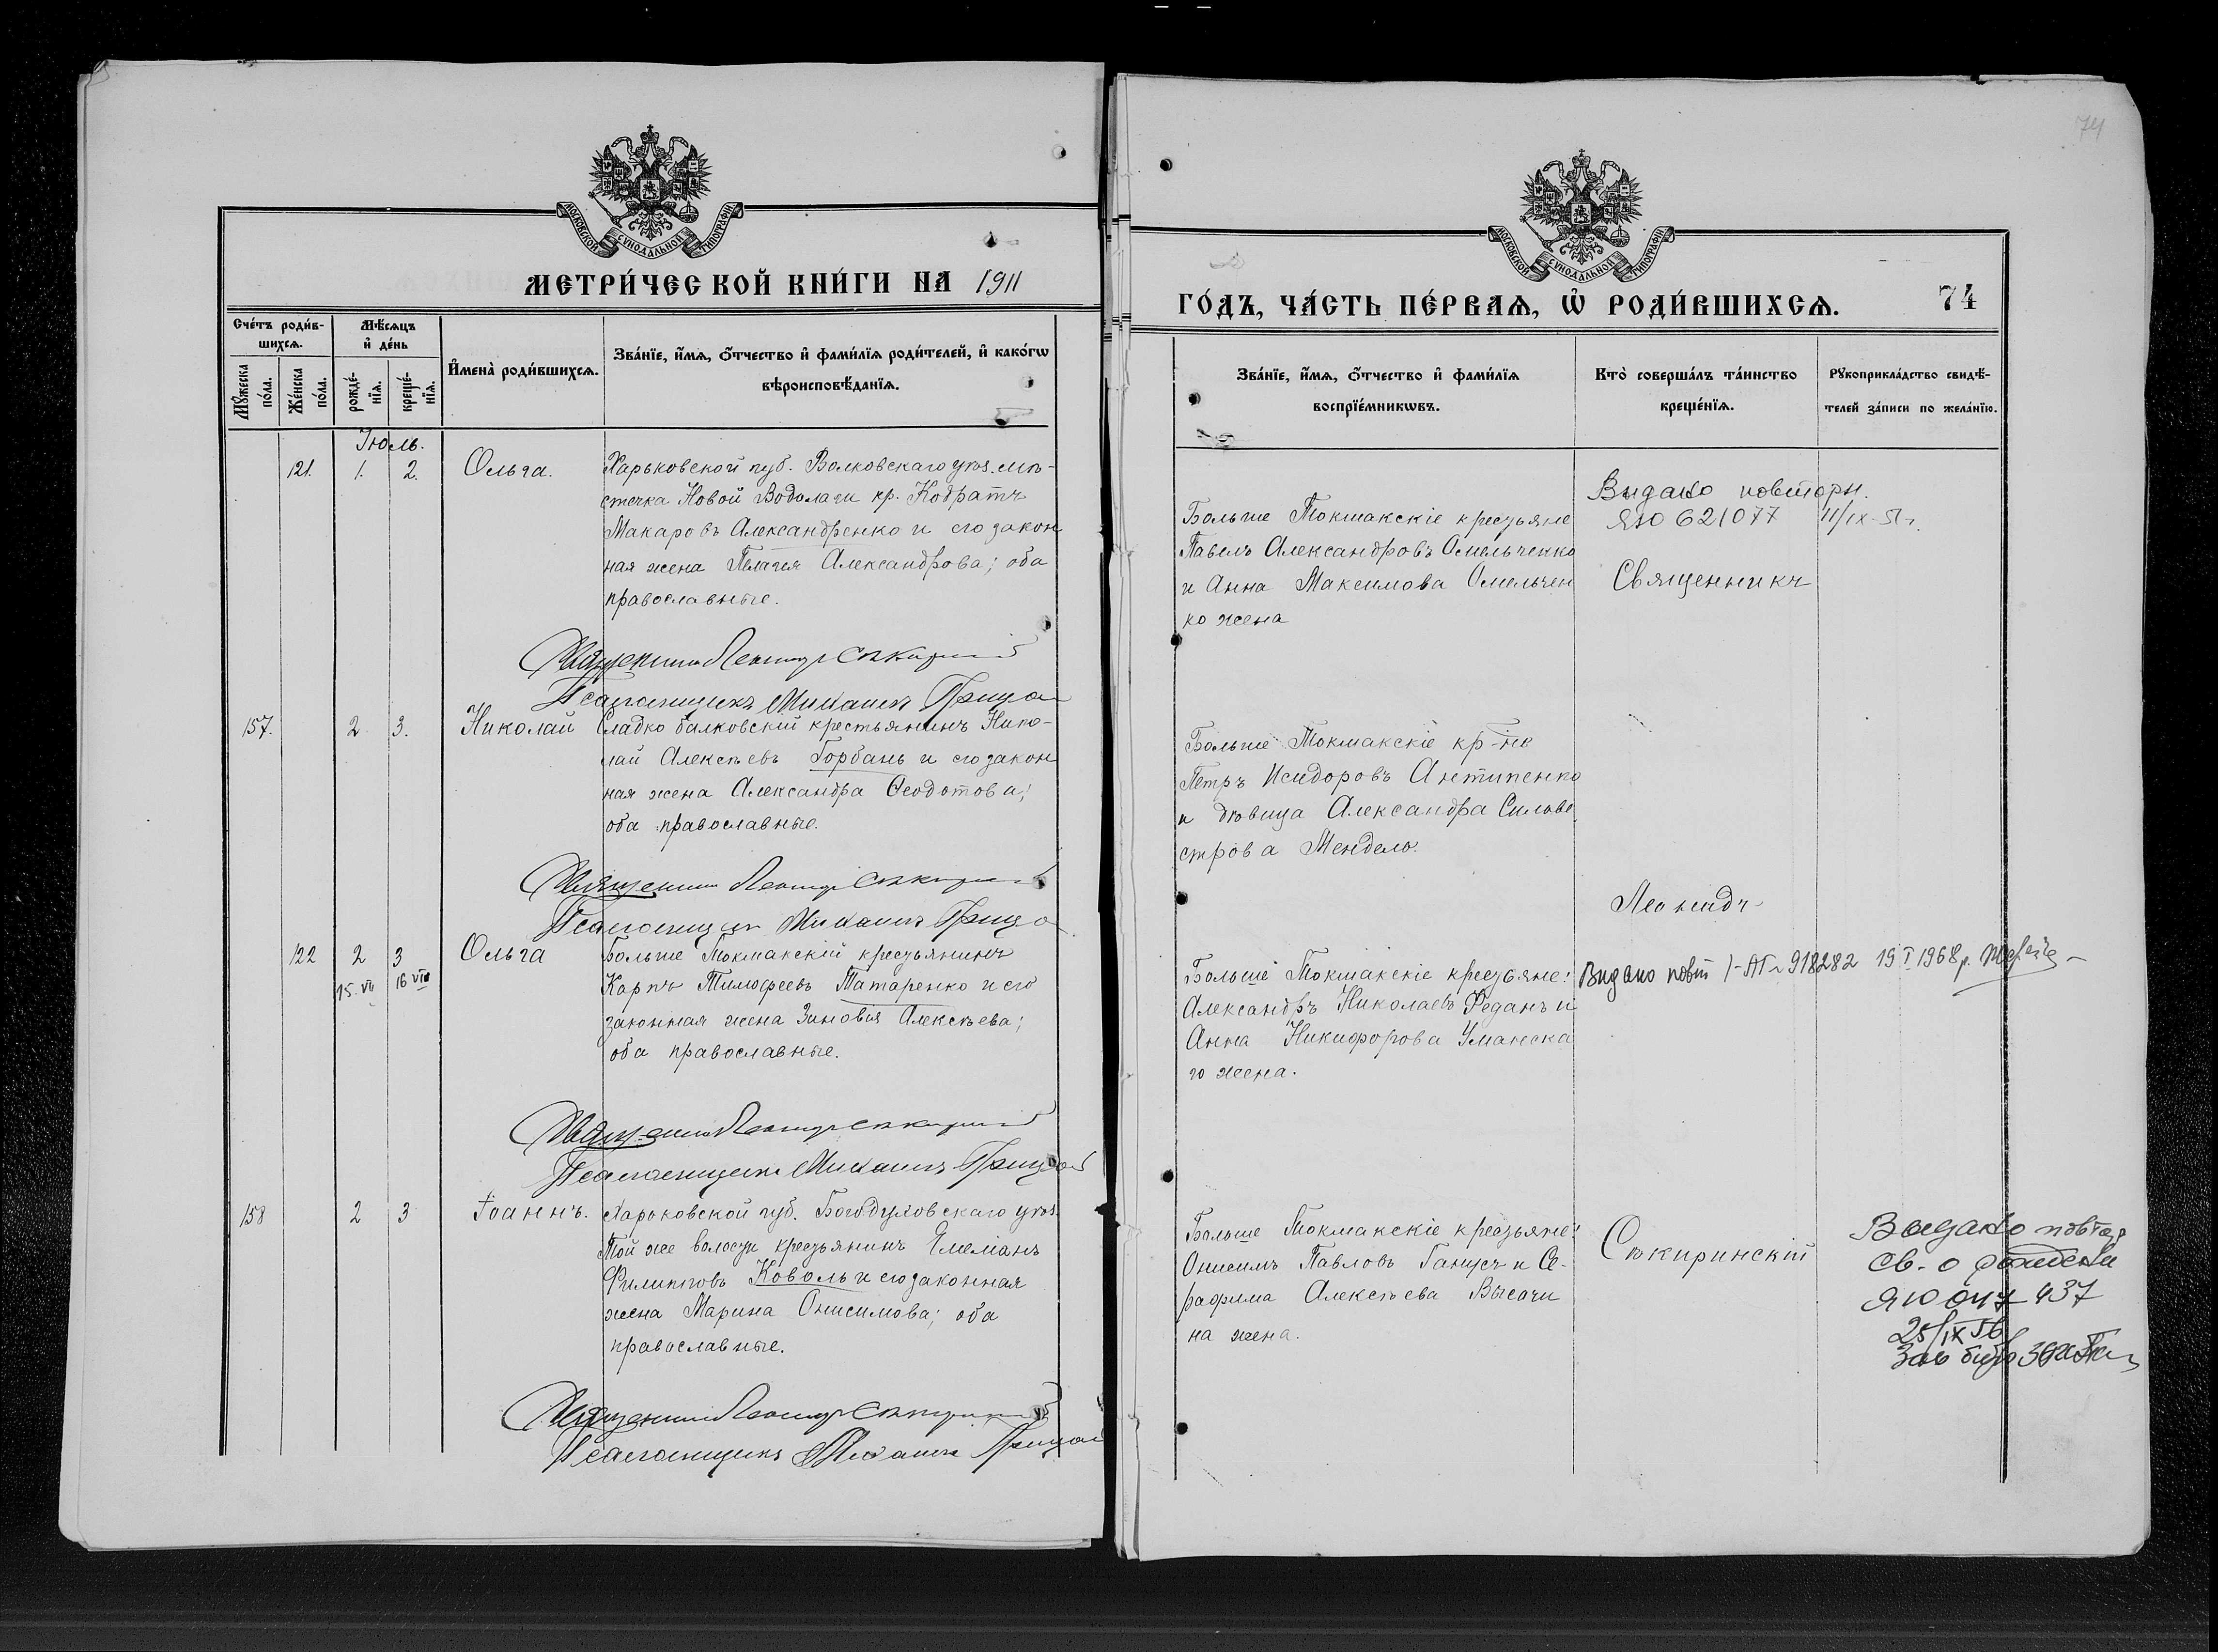 74
МОСКОВСКОЙ СѴНОДАЛЬНОЙ ТИПОГРАФІИ
МЕТРИ́ЧЕСКОЙ КНИ́ГИ НА 1911
Сче́тъ роди́в-
шихсѧ.
Мѣ́сѧцъ
и҆ де́нь
И҆мена̀ роди́вшихсѧ.
Зва́нїе, и҆́мѧ, ѻ҆́тчество и҆ фами́лїѧ роди́телей, и҆ како́гѡ
вѣроисповѣ́данїѧ.
Мꙋ́жеска
по́ла.
Же́нска
по́ла.
рожде́-
нїѧ.
креще́-
нїѧ.
Іюль.
121. 1. 2. Ольга.
Харьковской губ. Волковскаго уѣз. мѣ-
стечка Новой Водолаги кр. Кодратъ
Макаровъ Александренко и его закон
ная жена Пелагея Александрова; оба
православные.
Священникъ Леонидъ Сѣкиринскій
Псаломщикъ Михаилъ
157. 2 3. Николай
Сладко балковскій крестьянинъ Нико-
лай Алексѣевъ Горбань и его закон
ная жена Александра Ѳеодотова;
оба православные.
Священникъ Леонидъ Сѣкиринскій
Псаломщикъ Михаилъ
122 2 3 Ольга
15. VII 16 VII
Больше Токмакскій крестьянинъ
Карпъ Тимофеевъ Татаренко и его
законная жена Зиновія Алексѣева;
оба православные.
Священникъ Леонидъ Сѣкиринскій
Псаломщикъ Михаилъ
158 2 3 Іоаннъ.
Харьковской губ. Богодуховскаго уѣз.
Той же волости крестьянинъ Емеліанъ
Филипповъ Коваль и его законная
жена Марина Онисимова; оба
православные.
Священникъ Леонидъ Сѣкиринскій
Псаломщикъ Михаилъ
МОСКОВСКОЙ СѴНОДАЛЬНОЙ ТИПОГРАФІИ
ГО́ДЪ, ЧА́СТЬ ПЕ́РВАѦ, Ѽ РОДИ́ВШИХСѦ. 74
Зва́нїе, и҆́мѧ, ѻ҆́тчество и҆ фами́лїѧ
воспрїе́мникѡвъ.
Кто̀ соверша́лъ та́инство
креще́нїѧ.
Рꙋкоприкла́дство свидѣ́-
телей за́писи по жела́нїю.
Больше Токмакскіе крестьяне
Павелъ Александровъ Омельченко
и Анна Максимова Омельчен
ко жена
Выдано повторн.
ЯЮ 621077 11/IX-51г.
Священникъ
Больше Токмакскіе кр-не
Петръ Исидоровъ Антипенко
и дѣвица Александра Сильве
строва Мендело.
Леонидъ
Больше Токмакскіе крестьяне:
Александръ Николаевъ Феданъ и
Анна Никифорова Уманска
го жена.
Видано повт I-АП 918282 19 I 1968 р.
Больше Токмакскіе крестьяне:
Онисимъ Павловъ Ганусъ и Се-
рафима Алексѣева Высочи
на жена.
Сѣкиринскій
Выдано повтор
св. о рождении
ЯЮ 047 437
25/IX 56
Зав бюро ЗАГС